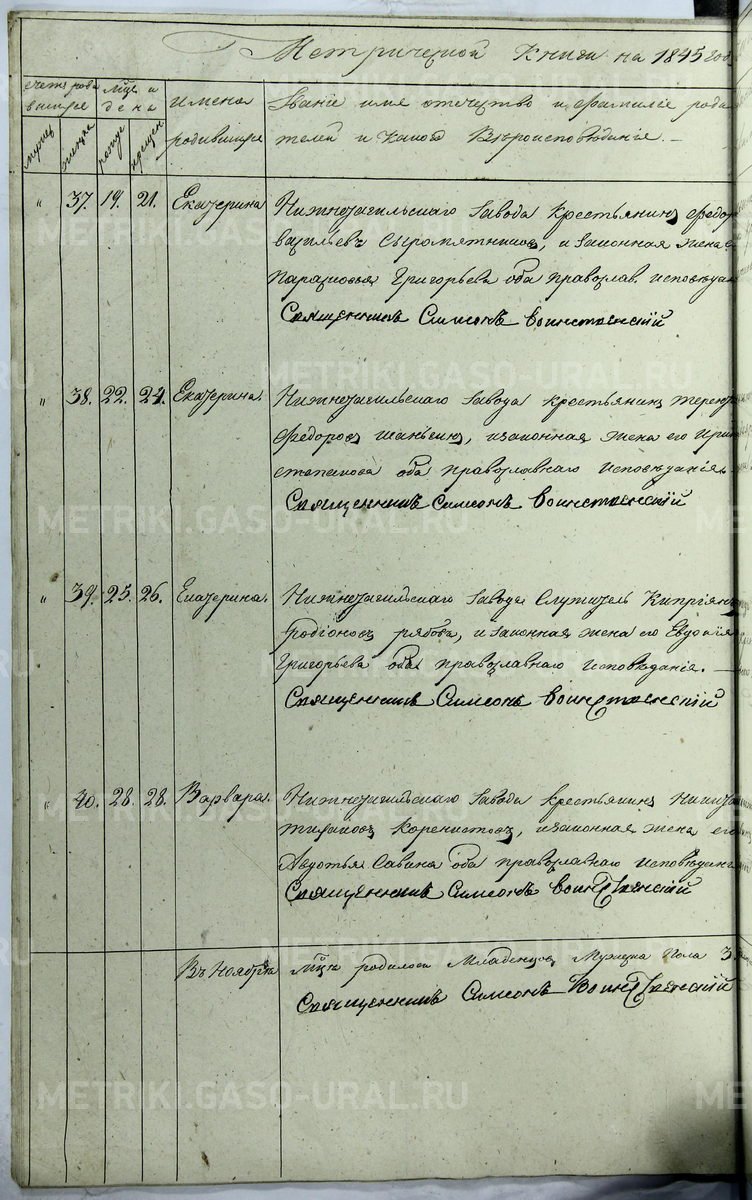 Метрической Книги на 1845 год
счетъ родившихся
Мцъ и дена
имена родившихся
Званіе имя отечество и фамиліе родителей и какого Вѣроисповѣданія. —
мужеск
женска
рожде
крещен
„ 37. 19. 21. Екатерина Нижнетагильскаго Завода крестьянинъ Федоръ
васильевъ Сыромятниковъ, и законная жена е
Парасковья Григорьева оба православ. исповѣдан
Священникъ Симеонъ Воинственскій
„ 38. 22. 24. Екатерина. Нижнетагильскаго Завода крестьянинъ терен
Федоровъ шаньгинъ, изаконная жена его
степанова оба православнаго исповѣданія.
Священникъ Симеонъ Воинственскій
„ 39. 25. 26. Екатерина. Нижнетагильскаго Завода Служитель Кипріянъ
Родіоновъ рябовъ, и законная жена его Евдокія
Григорьева оба православнаго исповѣданіе. —
Священникъ Симеонъ Воинственскій
„ 40. 28. 28. Варвара. Нижнетагильскаго Завода крестьянинъ
Коренистовъ, изаконная жена его
Авдотья Савина оба православнаго исповѣдан
Священникъ Симеонъ Воинственскій
Въ Ноябрѣ Мцѣ родилось Младенцовъ Мужеска Пола 3
Священникъ Симеонъ Воинственскій
METRIKI.GASO-URAL.RU